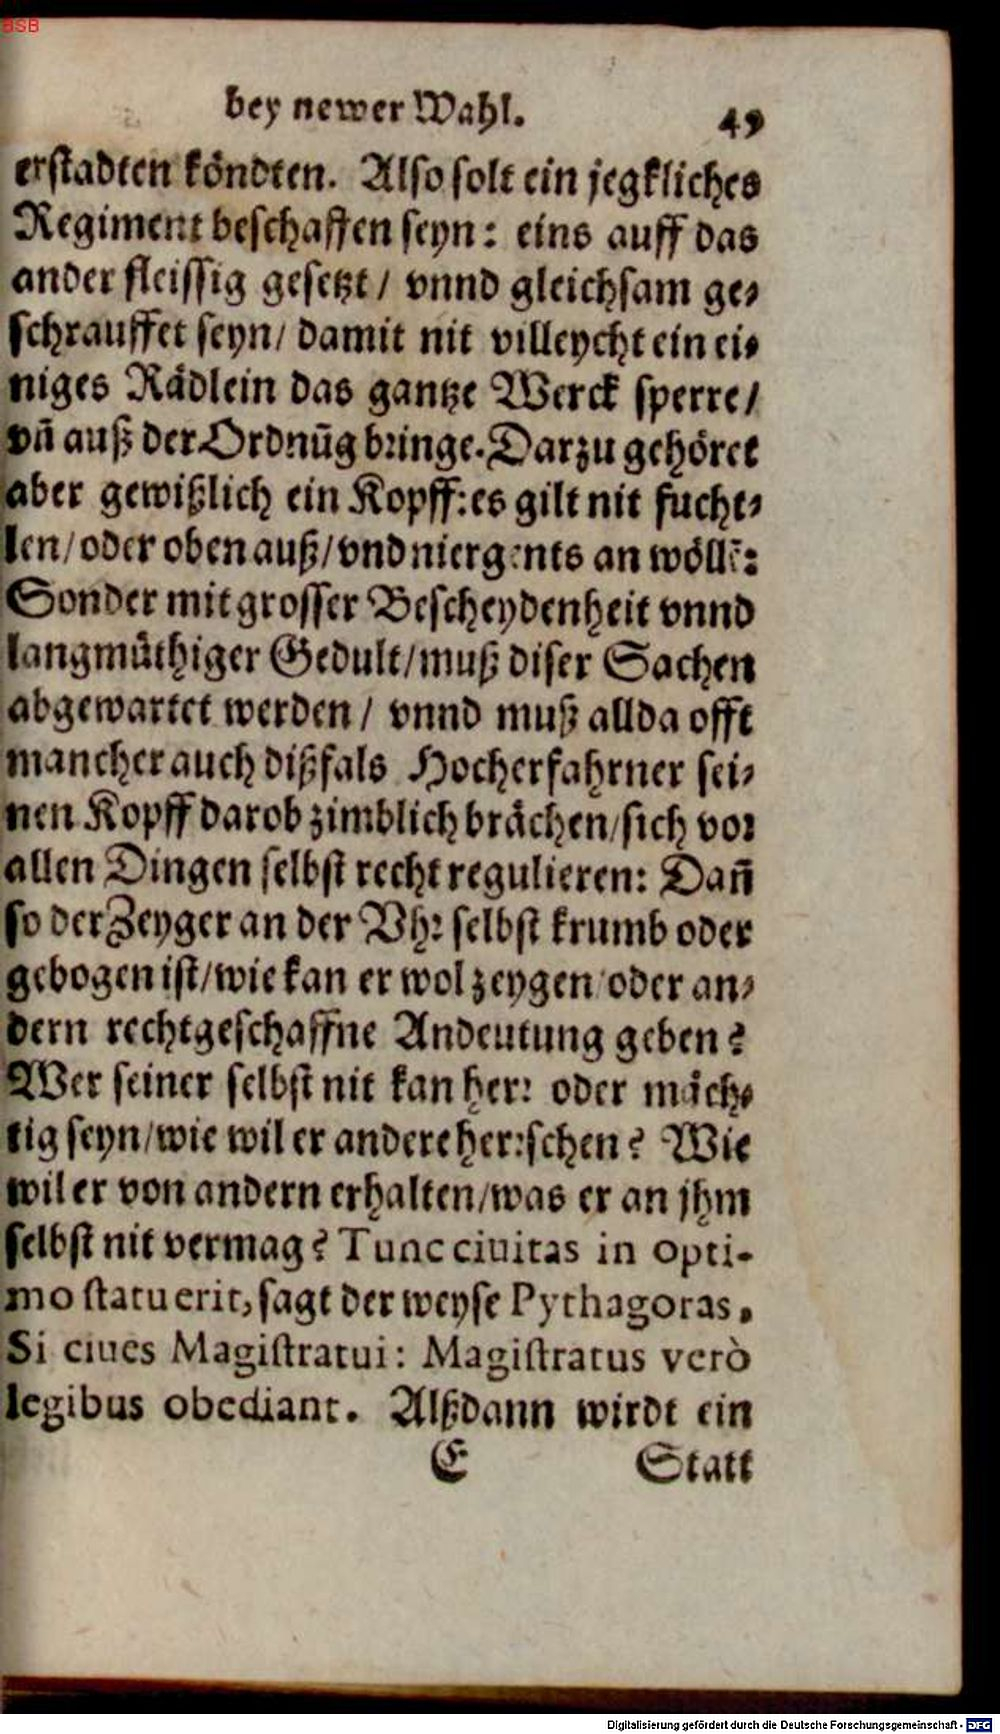 BSB
bey newer Wahl. 49
erstadten köndten. Also solt ein jegkliches
Regiment beschaffen seyn: eins auff das
ander fleissig gesetzt/ vnnd gleichsam ge-
schrauffet seyn/ damit nit villeycht ein ei-
niges Rädlein das gantze Werck sperre/
vñ auß der Ordnũg bringe. Darzu gehöret
aber gewißlich ein Kopff: es gilt nit fucht-
len/ oder oben auß/ vnd niergents an wöllẽ:
Sonder mit grosser Bescheydenheit vnnd
langmüthiger Gedult/ muß diser Sachen
abgewartet werden/ vnnd muß allda offt
mancher auch dißfals Hocherfahrner sei-
nen Kopff darob zimblich brächen/ sich vor
allen Dingen selbst recht regulieren: Dañ
so der Zeyger an der Vhr selbst krumb oder
gebogen ist/ wie kan er wol zeygen/ oder an-
dern rechtgeschaffne Andeutung geben?
Wer seiner selbst nit kan herr oder mäch-
tig seyn/ wie wil er andere herrschen? Wie
wil er von andern erhalten/ was er an jhm
selbst nit vermag? Tunc ciuitas in opti-
mo statu erit, sagt der weyse Pythagoras,
Si ciues Magistratui: Magistratus verò
legibus obediant. Alßdann wirdt ein
E Statt
Digitalisierung gefördert durch die Deutsche Forschungsgemeinschaft - DFG